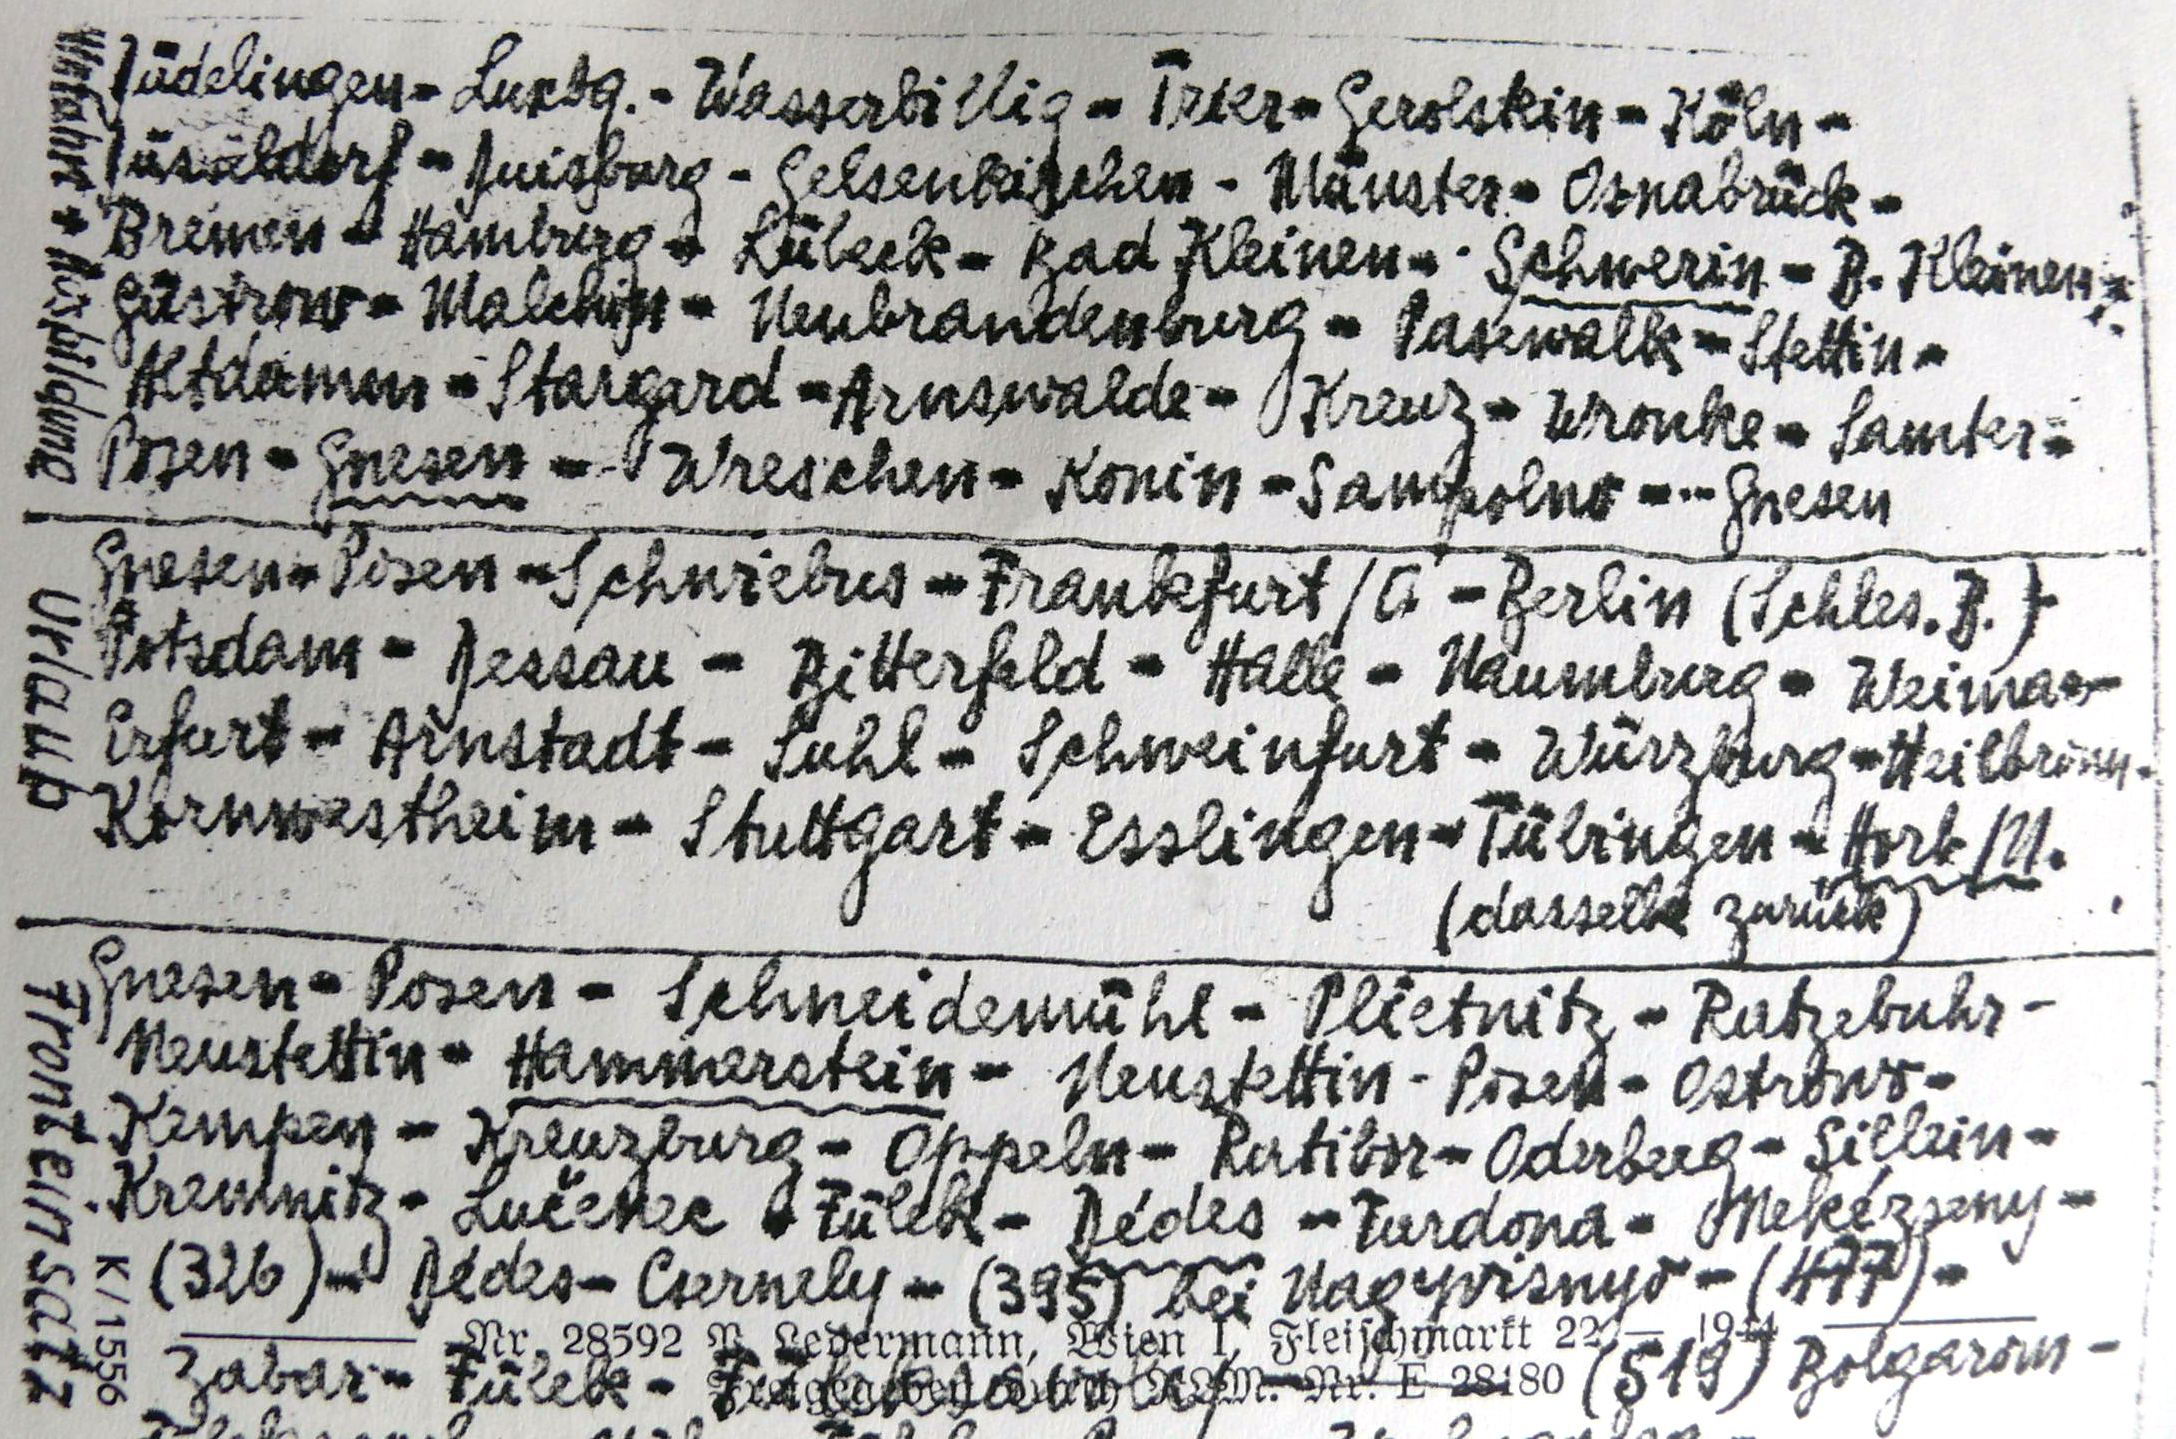 Düdelingen - Luxbg. - Wasserbillig - Trier - Gerolstein - Köln -
Düsseldorf - Duisburg - Gelsenkirchen - Münster - Osnabrück -
Bremen - Hamburg - Lübeck - Bad Kleinen - Schwerin - B. Kleinen -
Güstrow - Malchin - Neubrandenburg - Pasewalk - Stettin -
Altdamm - Stargard - Arnswalde - Kreuz - Wronke - Samter -
Posen - Gnesen - Wreschen - Konin - Sampolno - Gnesen
+ Ausbildung
Gnesen - Posen - Schwiebus - Frankfurt/O - Berlin (Schles. B.) -
Potsdam - Dessau - Bitterfeld - Halle - Naumburg - Weimar -
Erfurt - Arnstadt - Suhl - Schweinfurt - Würzburg - Heilbronn -
Kornwestheim - Stuttgart - Esslingen - Tübingen - Horb/N.
(dasselbe zurück)
Urlaub
Gnesen - Posen - Schneidemühl - Plietnitz - Ratzebuhr -
Neustettin - Hammerstein - Neustettin - Posen - Ostrowo -
Kempen - Kreuzburg - Oppeln - Ratibor - Oderberg - Sillein -
Kremnitz - Lučenec - Fülek - Dédes - Tardona - Mekézseny -
(326) - Dédes - Csernely - (395) bei Nagyvisnyó - (477) -
Nr. 28592 N. Ledermann, Wien I, Fleischmarkt 22 — 1944
Zabar - Fülek - (519) Bolgarom -
Nr. E 28180
Fronteinsatz
K/1556